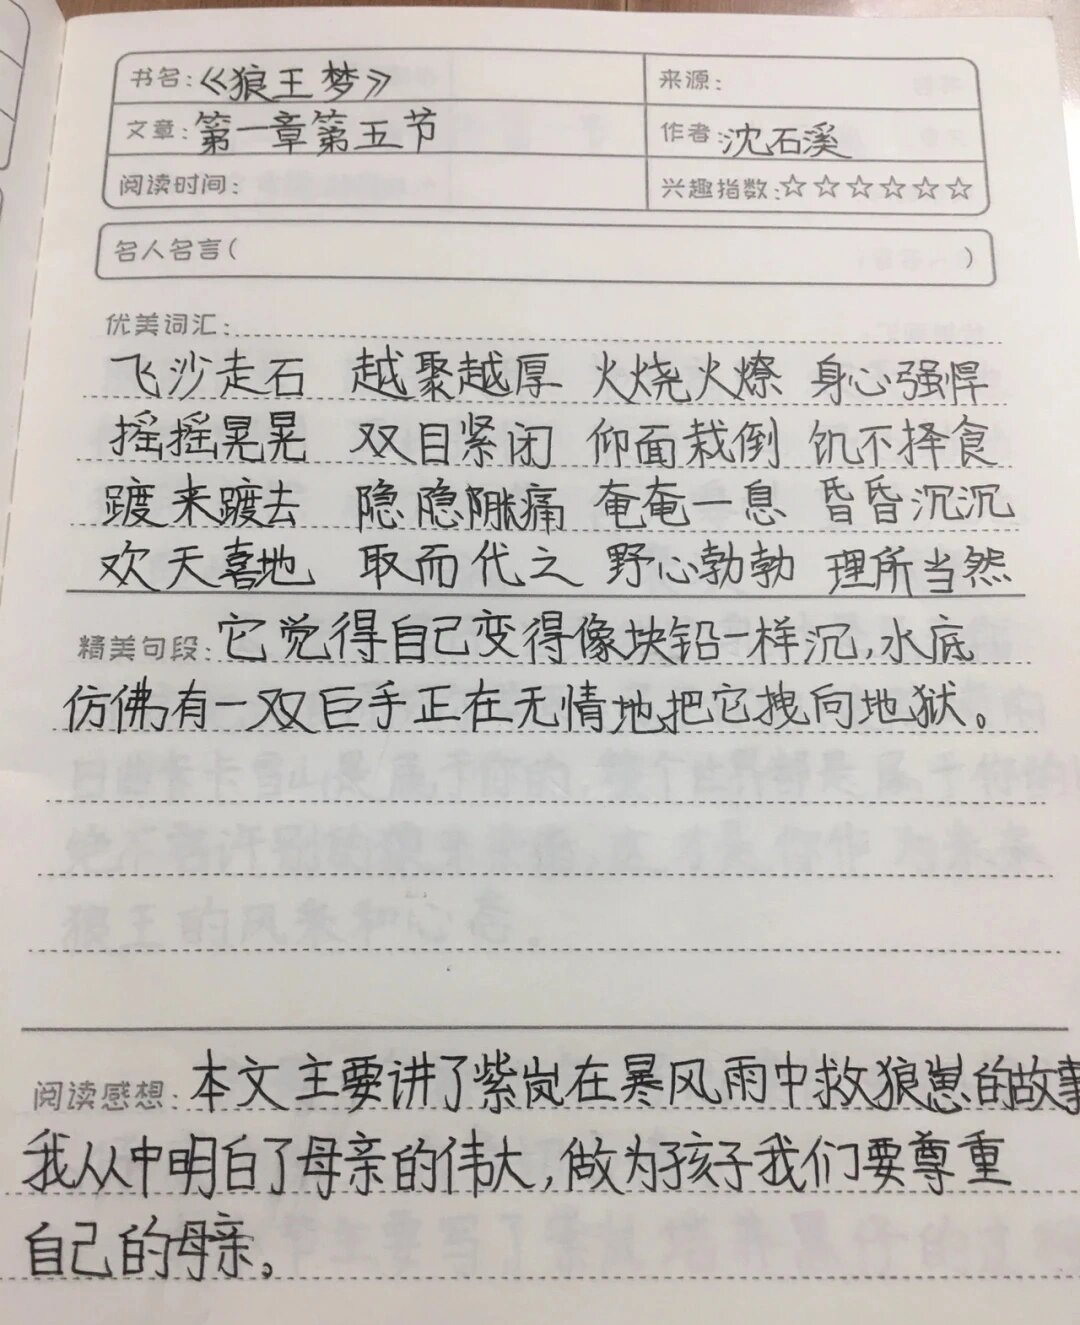 书名:《狼王梦》 来源:
文章:第一章第五节 作者:沈石溪
阅读时间: 兴趣指数:☆☆☆☆☆☆
名人名言( )
优美词汇:
飞沙走石 越聚越厚 火烧火燎 身心强悍
摇摇晃晃 双目紧闭 仰面栽倒 饥不择食
踱来踱去 隐隐胀痛 奄奄一息 昏昏沉沉
欢天喜地 取而代之 野心勃勃 理所当然
精美句段:它觉得自己变得像块铅一样沉,水底
仿佛有一双巨手正在无情地把它拽向地狱。
阅读感想:本文主要讲了紫岚在暴风雨中救狼崽的故事
我从中明白了母亲的伟大,做为孩子我们要尊重
自己的母亲。